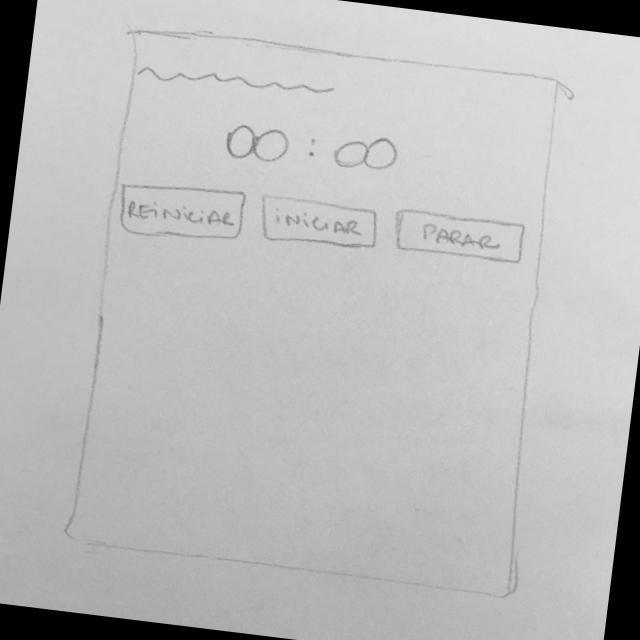 00:00
REINICIAR INICIAR PARAR